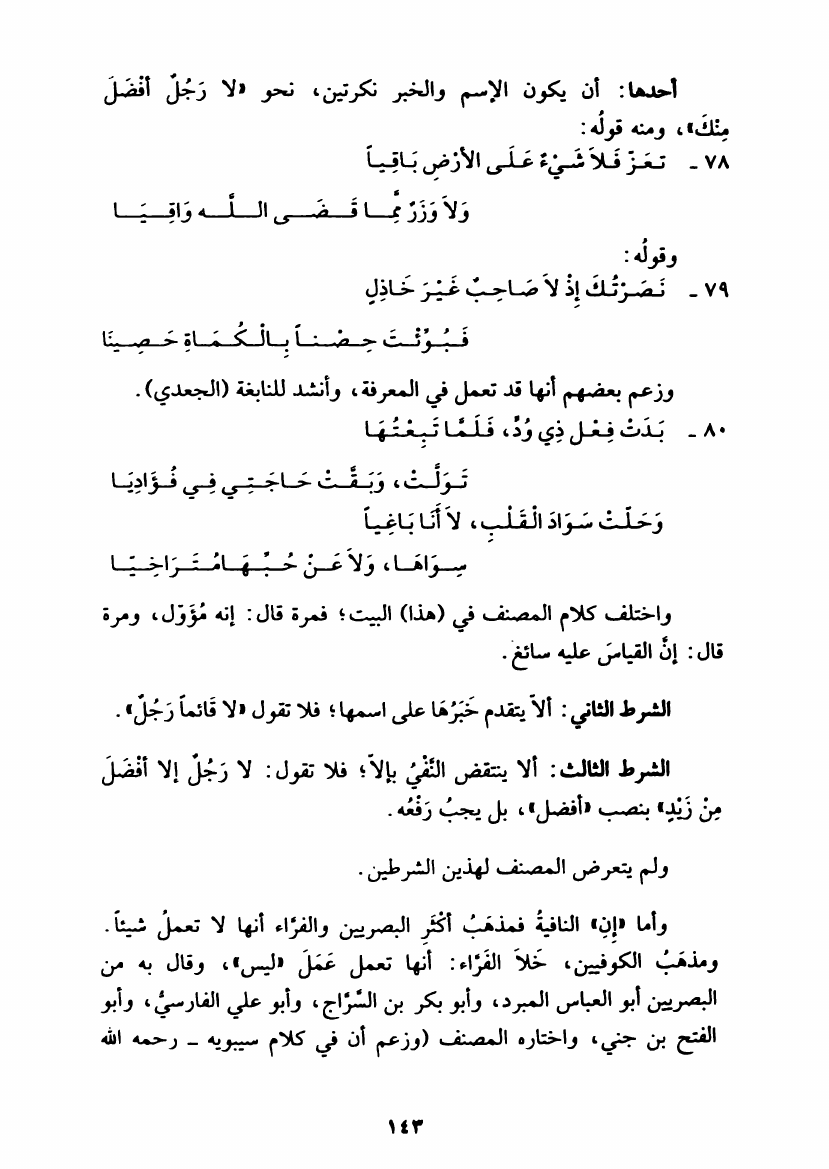 أحدها: أن يكون الإسم والخبر نكرتين، نحو «لا رَجُلٌ أفْضَلَ
مِنْكَ»، ومنه قولُه:
٧٨ - تعَزَّ فَلاَ شَيْءٌ عَلَى الأرْضِ بَاقِياً
وَلاَ وَزَرٌ مِمَّا قَضَى اللَّه وَاقِيَا
وقولُه:
٧٩ - نَصَرْتُكَ إِذْ لاَ صَاحِبٌ غَيْرَ خَاذِلٍ
فَبُوِّئْتَ حِصْناً بِالْكُمَاةِ حَصِينَا
وزعم بعضهم أنها قد تعمل في المعرفة، وأنشد للنابغة (الجعدي).
٨٠ - بَدَتْ فِعْلَ ذِي وُدٍّ، فَلَمَّا تَبِعْتُهَا
تَوَلَّتْ، وَبَقَّتْ حَاجَتِي فِي فُؤَادِيَا
وَحَلّتْ سَوَادَ الْقَلْبِ، لاَ أَنَا بَاغِياً
سِوَاهَا، وَلاَ عَنْ حُبِّهَا مُتَرَاخِيَّا
واختلف كلام المصنف في (هذا) البيت؛ فمرة قال: إنه مُؤَوّل، ومرة
قال: إنَّ القياسَ عليه سائغ.
الشرط الثاني: ألاّ يتقدم خَبَرُهَا على اسمها؛ فلا تقول «لا قَائماً رَجُلٌ».
الشرط الثالث: ألا ينتقض النَّفْيُ بإلاّ؛ فلا تقول: لا رَجُلٌ إلا أفْضَلَ
مِنْ زَيْدٍ» بنصب «أفضل»، بل يجبُ رَفْعُه.
ولم يتعرض المصنف لهذين الشرطين.
وأما «إنِ» النافيةُ فمذهَبُ أكْثَرِ البصريين والفرَّاء أنها لا تعملُ شيئاً.
ومذهَبُ الكوفيين، خَلاَ الفَرَّاء: أنها تعمل عَمَلَ «ليس»، وقال به من
البصريين أبو العباس المبرد، وأبو بكر بن السَّرَّاج، وأبو علي الفارسيُّ، وأبو
الفتح بن جني، واختاره المصنف (وزعم أن في كلام سيبويه - رحمه الله
١٤٣